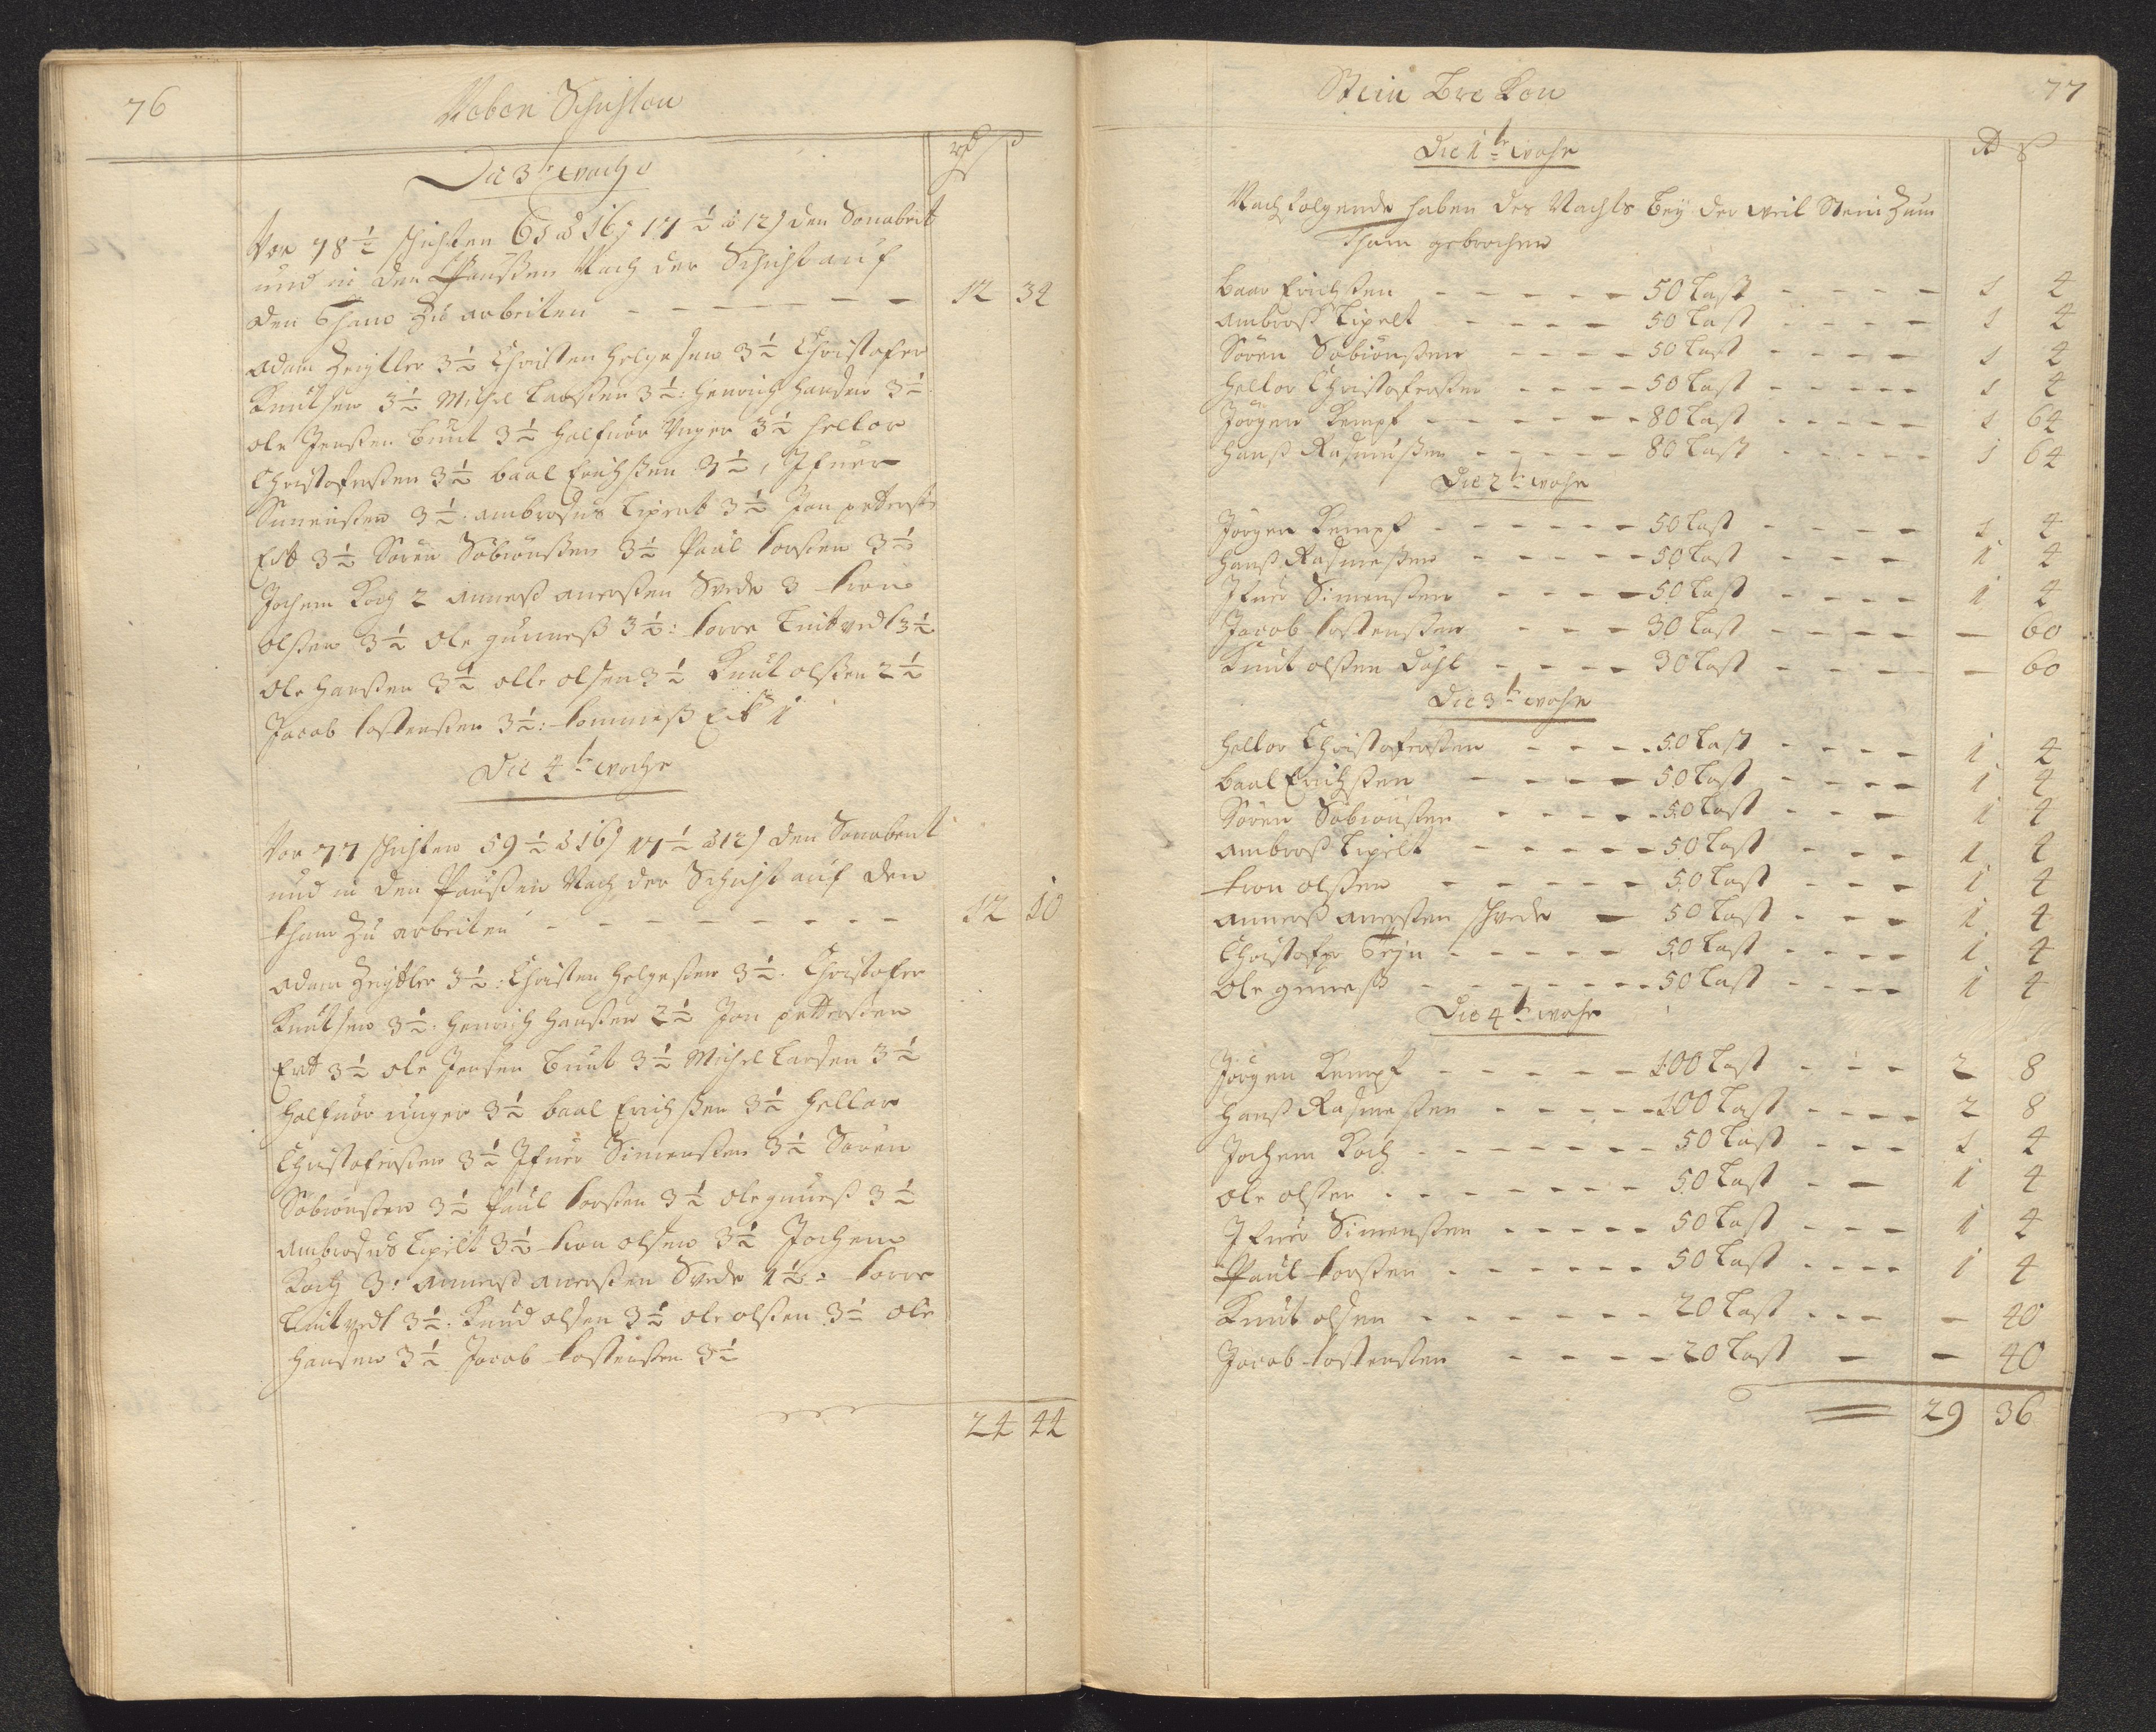 76
Neben Schichten
Die 3te woche
rd ß
Vor 78 1/2 schichten 61 à 16 ß 17 1/2 à 12 ß den Sonabent
und in den Paußen Nach der Schicht auf
den Tham Zu arbeiten - - - - - 12 34
Adam Zeigller 3 1/2 Christen Helgesen 3 1/2 Christofer
Knutsen 3 1/2 Michel Larßen 3 1/2: Henrich Hansen 3 1/2
ole Jenßen Bunt 3 1/2 Halfuor Unger 3 1/2 Hellor
Christoferßen 3 1/2 baal Erichßen 3 1/2, Ifuer
Simenßen 3 1/2: ambrosius Lipelt 3 1/2 Jon petterß
Ert 3 1/2 Sören Söbiönßen 3 1/2 Paul torßen 3 1/2
Jochem Koch 2 anners anerßen Svede 3 tron
olßen 3 1/2 ole gunneß 3 1/2: torre Luitvedt 3 1/2
ole Hanßen 3 1/2 olle olsen 3 1/2 Knut olßen 2 1/2
Jacob tostenßen 3 1/2: tommeß 1
Die 4te woche
Vor 77 schichten 59 1/2 à 16 ß 17 1/2 à 12 ß den Sonabent
und in den Paußen Nach der Schicht auf den
tham Zu arbeiten - - - - - - - - 12 10
adam Zeigtler 3 1/2: Christen Helgeßen 3 1/2. Christofer
Knutsen 3 1/2: Henrich Hanßen 2 1/2 Jon petterßen
Ert 3 1/2 ole Jensen Bunt 3 1/2 Michel Larsen 3 1/2
Halfuor unger 3 1/2 baal Erichßen 3 1/2 Hellor
Christoferßen 3 1/2 Ifuer Simenßen 3 1/2 Sören
Söbiönßen 3 1/2 Paul torßen 3 1/2 ole guneß 3 1/2
ambrosius Lipelt 3 1/2 tron olsen 3 1/2 Jochem
Koch 3: anners anerßen Svede 1 1/2: torre
Luitvedt 3 1/2: Knud olsen 3 1/2 ole olßen 3 1/2 ole
Hansen 3 1/2 Jacob tostenßen 3 1/2
24 44
77
Stein Brechen
Die 1te woche
rd ß
Nachfolgende haben des Nachts bey der weil Stein Zum
Tham gebrochen
baar Erichßen - - - - - 50 Last - - - - 1 4
ambroß Lipelt - - - - 50 Last - - - - 1 4
Sören Söbiönßen - - - - 50 Last - - - - 1 4
Hellor Christoferßen - - - - 50 Last - - - - - 1 4
Jörgen Kempf - - - - - - 80 Last - - - - - 1 64
Hanß Rasmußen - - - - - 80 Last - - - - - 1 64
Die 2te woche
Jörgen Kempf - - - - - - 50 Last - - - - 1 4
Hanß Rasmeßen - - - - - 50 Last - - - - 1 4
Ifuer Simenßen - - - - 50 Last - - - - 1 4
Jacob tostenßen - - - 30 Last - - - - — 60
Knut olßen Dahl - - - - 30 Last - - - - — 60
Die 3te woche
Hellor Christoferßen - - - - 50 Last - - - - 1 4
baal Erichßen - - - - 50 Last - - - - 1 4
Sören Söbiönßen - - - - - 50 Last - - - 1 4
ambroß Lipelt - - - - - 50 Last - - - 1 4
tron olßen - - - - - 50 Last - - - 1 4
annerß anerßen schvede - 50 Last - - - 1 4
Christofer - - - - - 50 Last - - - - 1 4
ole guneß - - - - - - - 50 Last - - - - 1 4
Die 4te woche
Jörgen Kempf - - - - - 100 Last - - - 2 8
Hanß Rasmeßen - - - - - 100 Last - - - - 2 8
Jochem Koch - - - - - - - 50 Last - - - 1 4
ole olßen - - - - - - - 50 Last - - 1 4
Ifuer Simenßen - - - - - 50 Last - - - 1 4
Paul torßen - - - - - - 50 Last - - - - 1 4
Knut olsen - - - - - - 20 Last - - - — 40
Jacob tostenßen - - - - 20 Last - — 40
29 36